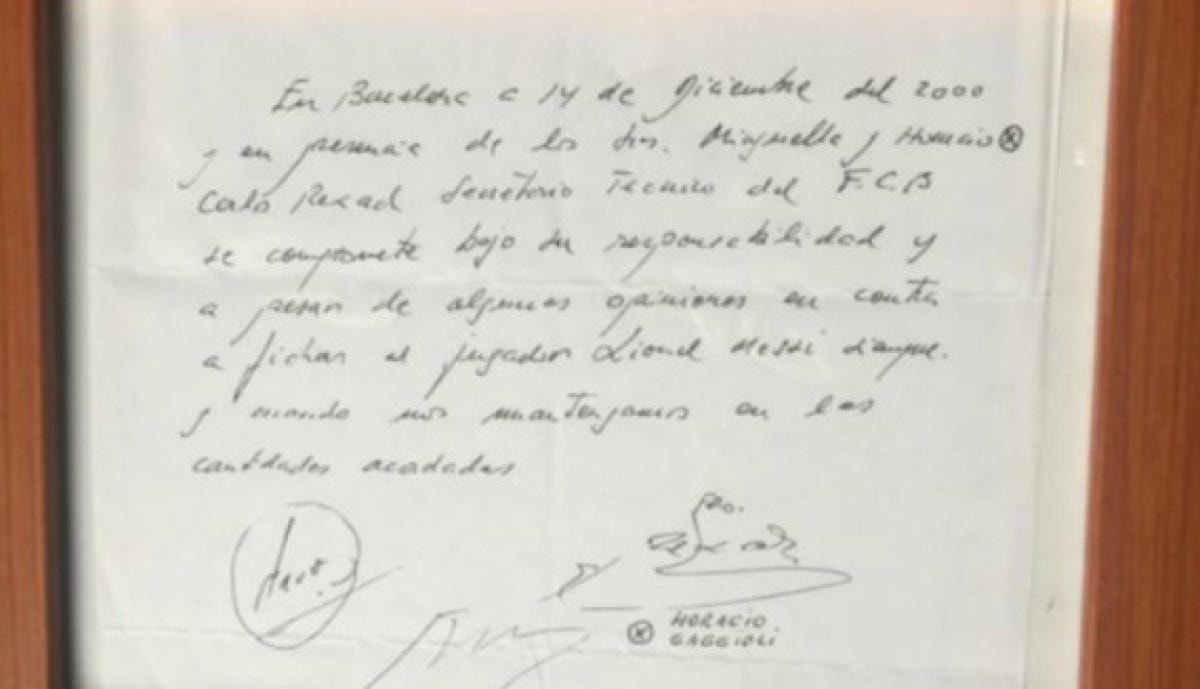 En Barcelona a 14 de Diciembre del 2000
y en presencia de los Sres. Minguella y Horacio ⓧ
Carlos Rexach Secretario Tecnico del F.C.B
se compromete bajo su responsabilidad y
a pesar de algunas opiniones en contra
a fichar al jugador Lionel Messi siempre
y cuando nos mantengamos en las
cantidades acordadas
ⓧ HORACIO
GAGGIOLI